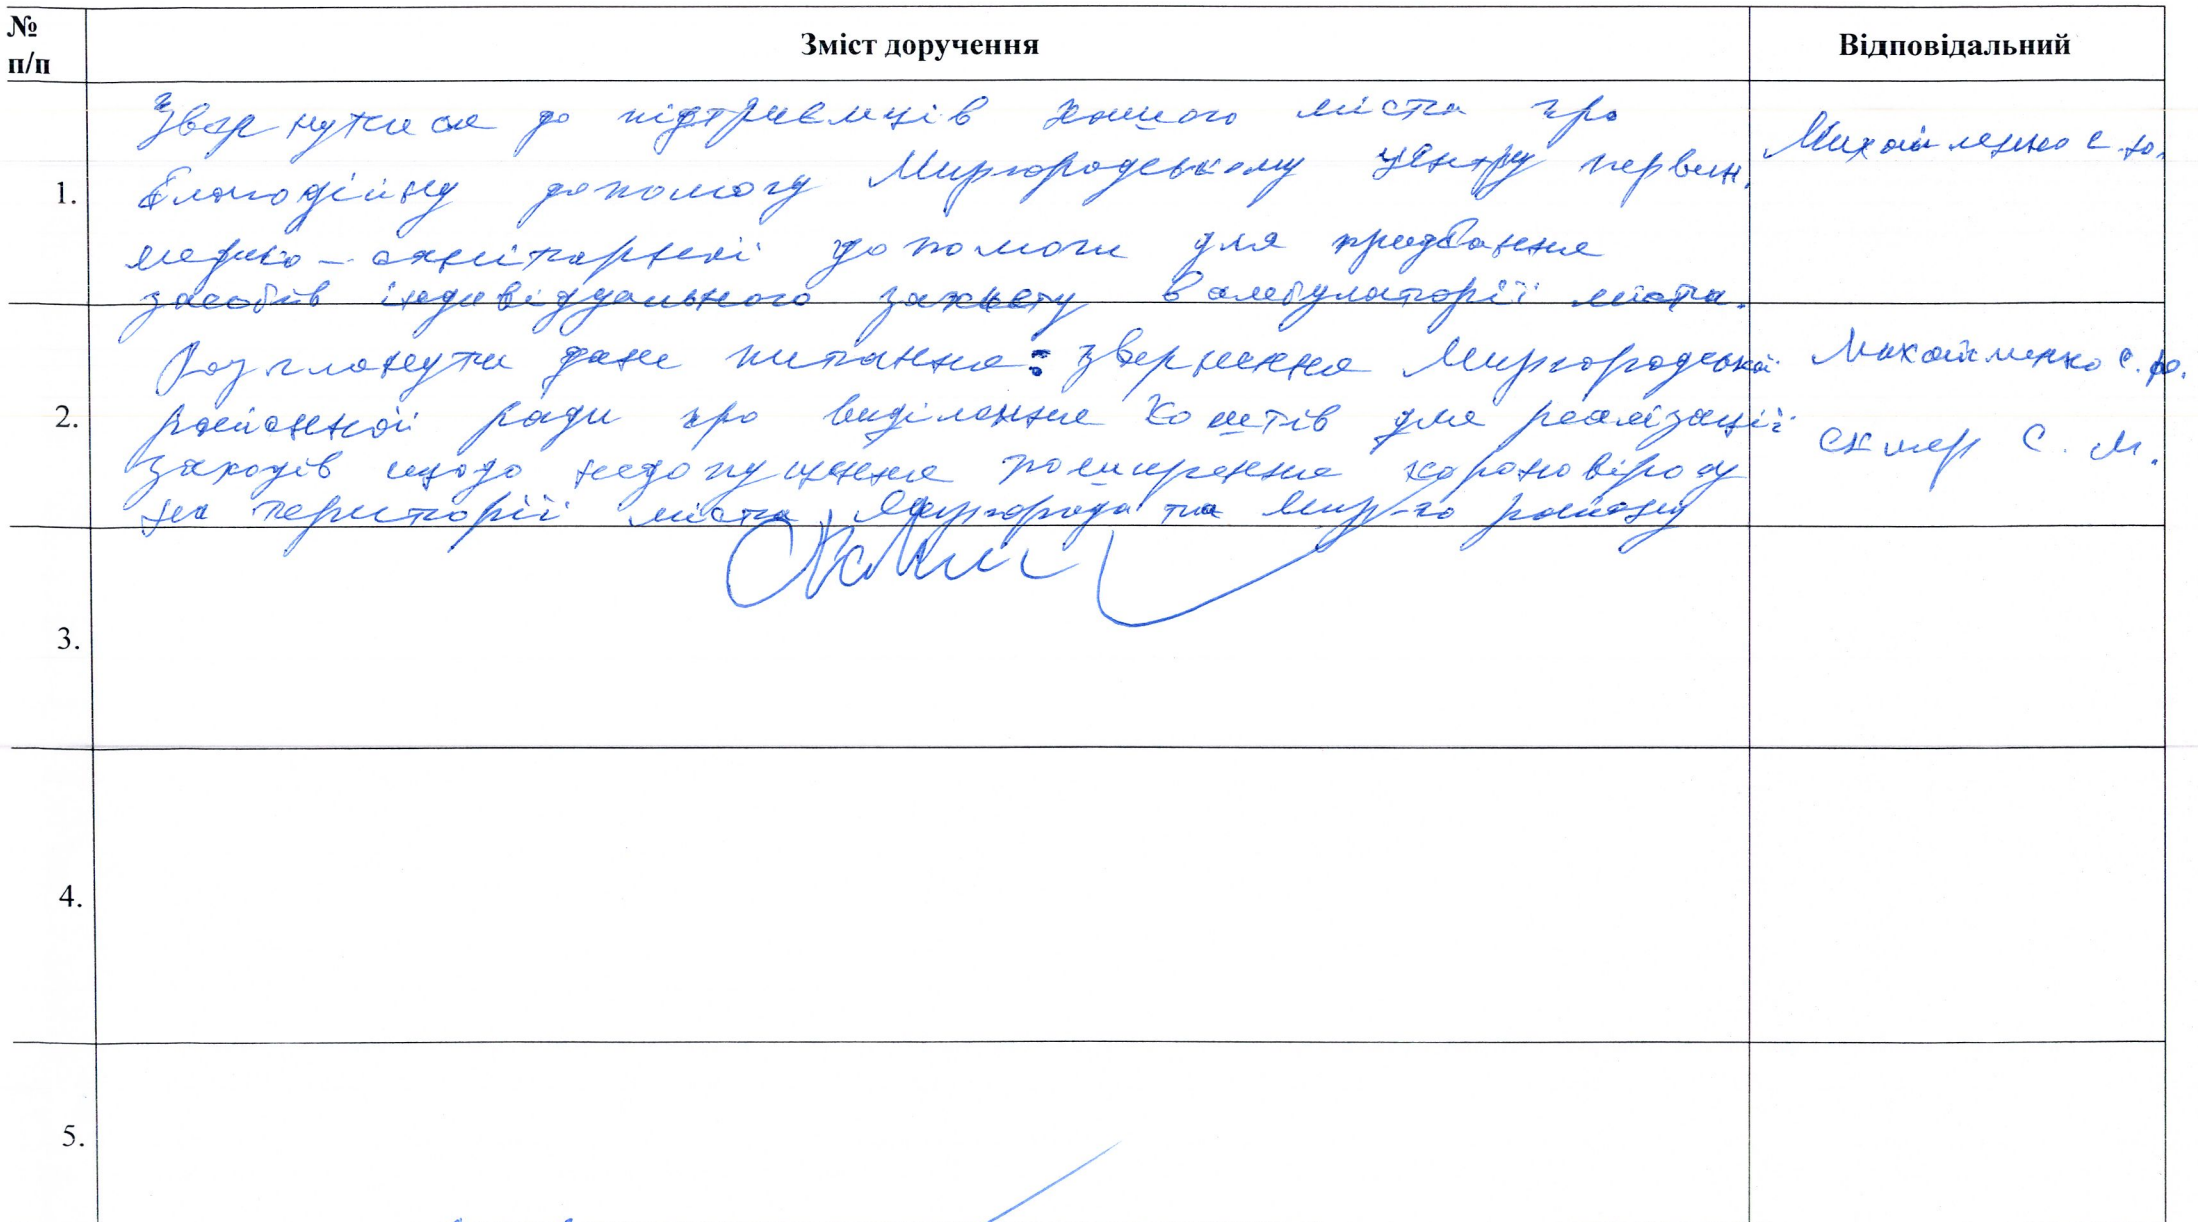 №
п/п
Зміст доручення
Відповідальний
1.
Звернутися до підприємців нашого міста про
благодійну допомогу Миргородському центру первин.
медико-санітарної допомоги для придбання
засобів індивідуального захисту в амбулаторії міста.
Михайленко С. Ю.
2.
Розглянути дане питання: звернення Миргородської
районної ради про виділення коштів для реалізації
заходів щодо недопущення поширення короновірусу
на території міста Миргорода та Мир-го району
Михайленко С. Ю.
С. М.
3.
4.
5.